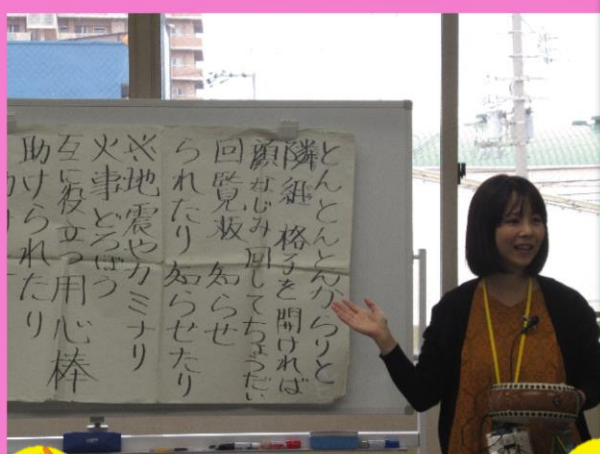 とんとんとんからりと
隣組 格子を開ければ
顔なじみ 回してちょうだい
回覧板 知らせ
られたり 知らせたり
※地震やカミナリ
火事どろぼう
互に役立つ用心棒
助けられたり